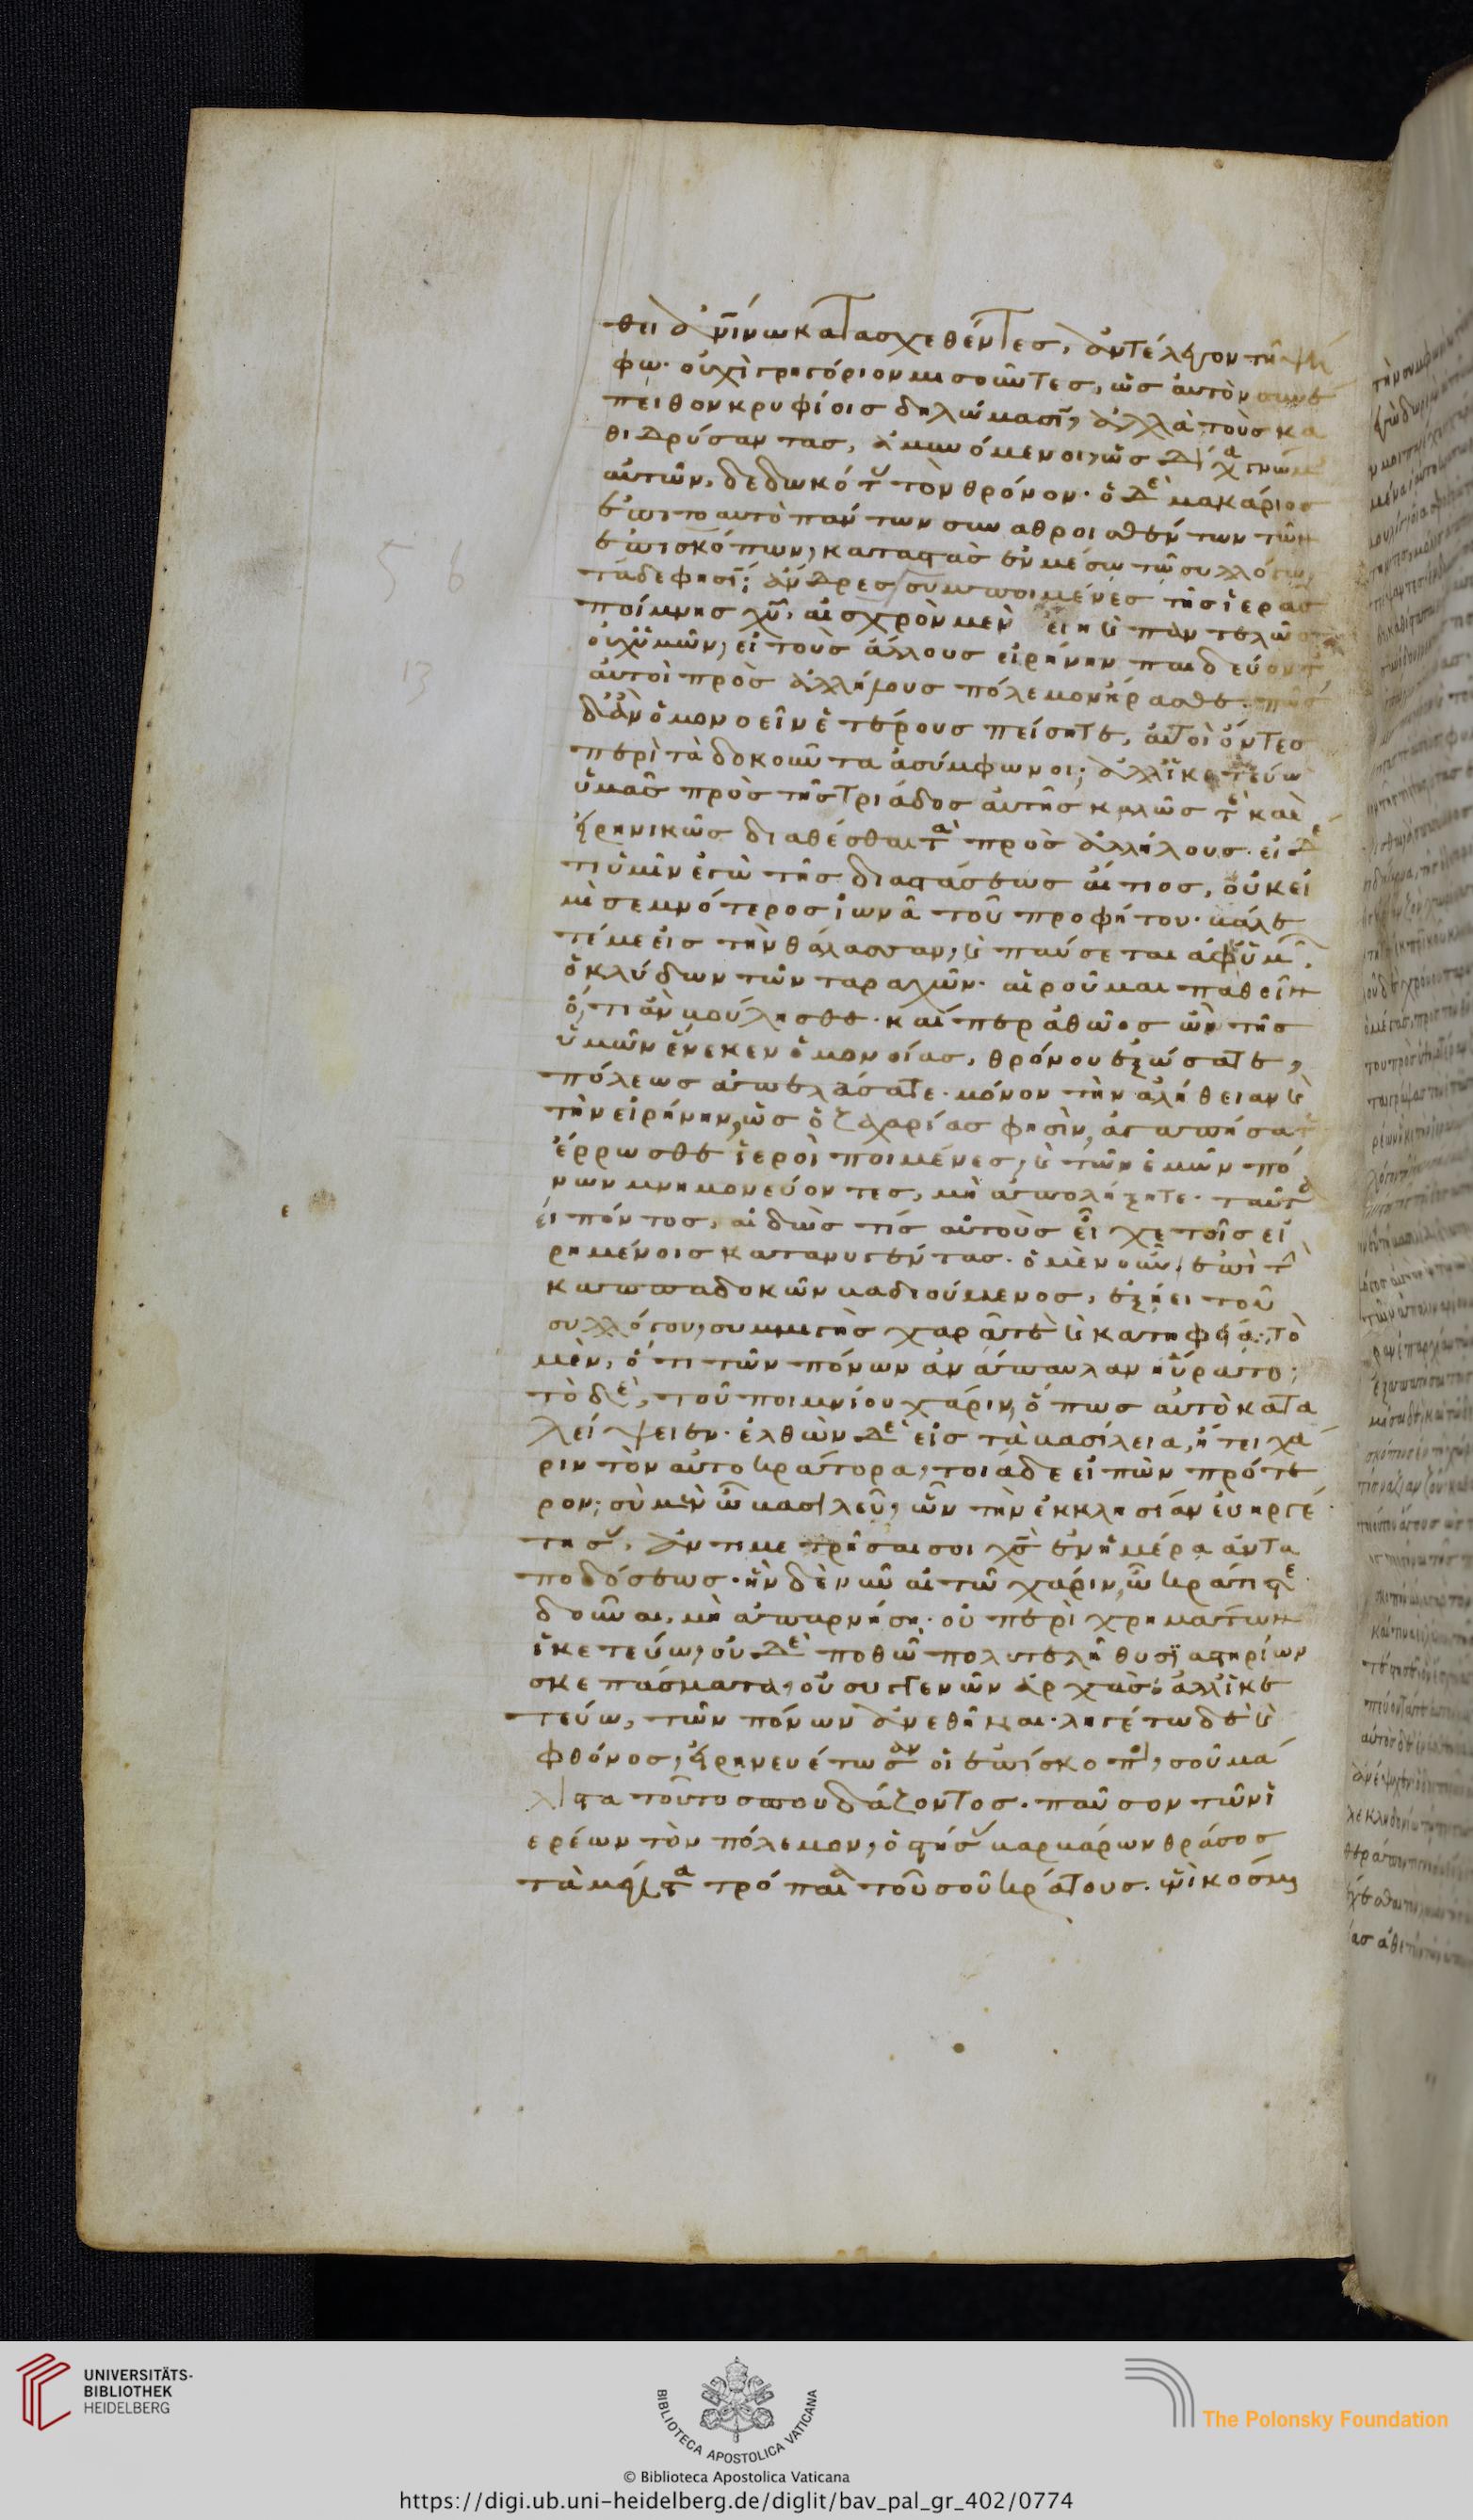 θει δεινῶ κατασχεθέντες, ἀντέλεγον τῆ
φω· οὐχὶ γρηγόριον μισοῦντες, ὡς αὐτὸν
πειθον κρυφίοις δηλώμασιν, ἀλλὰ τοὺς κα
θιδρύσαντας, ἀμυνόμενοι, ὡς δίχα γνώμης
αὐτῶν, δεδωκότας τὸν θρόνον· ὁ δὲ μακάριος
ἐπιτοαυτὸ πάντων συναθροισθέντων τῶν
ἐπισκόπων, καταστὰς ἐν μέσω τῶ συλλόγω,
τάδε φησίν; ἄνδρες συμποιμένες τῆς ἱερᾶς
ποίμνης χυ, αἰσχρὸν μὲν εἴη καὶ παντελῶς
οὐχ ὑμῶν, εἰ τοὺς ἄλλους εἰρήνην παιδεύοντες
αὐτοὶ πρὸς ἀλλήλους πόλεμον ἤρασθε. πῶς
δ' ἂν ὁμονοεῖν ἑτέρους πείσητε, αὐτοὶ ὄντες
περὶ τὰ δοκοῦντα ἀσύμφωνοι; ἀλλ' ἱκετεύω
ὑμᾶς πρὸς τῆς τριάδος αὐτῆς καλῶς τὲ καὶ
εἰρηνικῶς διαθέσθαι τὰ πρὸς ἀλλήλους· εἰ δέ
τι ὑμῖν ἐγὼ τῆς διαστάσεως αἴτιος, οὐκ εἰ
μὶ σεμνότερος ἰωνᾶ τοῦ προφήτου· βάλε
τέ με εἰς τὴν θάλασσαν, καὶ παύσεται ἀφ' ὑμῶν
ὁ κλύδων τῶν ταραχῶν· αἱροῦμαι παθεῖν
ὅ,τι ἂν βούλησθε· καίπερ ἀθῶος ὢν τῆς
ὑμῶν ἕνεκεν ὁμονοίας, θρόνου ἐξώσατε,
πόλεως ἀπελάσατε· μόνον τὴν ἀλήθειαν καὶ
τὴν εἰρήνην, ὡς ὁ ζαχαρίας φησὶν, ἀγαπήσατε
ἔρρωσθε ἱεροὶ ποιμένες, καὶ τῶν ἐμῶν πό
νων μνημονεύοντες, μὴ ἀπολήξητε· ταῦτα
εἰπόντος, αἰδώς τίς αὐτοὺς εἶχε τοῖς εἰ
ρημένοις κατανυγέντας· ὁ μὲν οὖν, ἐπὶ τὴν
καππαδοκῶν βαδιούμενος, ἐξήει τοῦ
συλλόγου, συμμιγὴς χαρᾶ τὲ καὶ κατηφεία· τὸ
μὲν, ὅτι τῶν πόνων ἀνάπαυλαν ηὕρατο;
τὸ δὲ, τοῦ ποιμνίου χάριν, ὅπως αὐτὸ κατα
λείψειεν· ἐλθὼν δὲ εἰς τὰ βασίλεια, ἤτει χά
ριν τὸν αὐτοκράτορα, τοιάδε εἰπὼν πρότε
ρον; σὲ μὲν ὦ βασιλεῦ, ὧν τὴν ἐκκλησίαν εὐηργέ
τησας, ἀντιμετρήσαι σοι χς ἐν ἡμέρα ἀντα
ποδόσεως· ἣν δὲ νῦν αἰτῶ χάριν, ὦ κράτιστε
δοῦναι, μὴ ἀπαρνήση· οὐ περὶ χρημάτων
ἱκετεύω, οὐδὲ ποθῶ πολυτελῆ θυσιαστηρίων
σκεπάσματα, οὐ συγγενῶν ἀρχάς· ἀλλ' ἱκε
τεύω, τῶν πόνων ἀνεθῆναι· ληγέτω δὲ καὶ
φθόνος, εἰρηνευέτωσαν οἱ ἐπίσκοποι, σοῦ μά
λιστα τοῦτο σπουδάζοντος. παῦσον τῶν ἱ
ερέων τὸν πόλεμον, ὁ στήσας βαρβάρων θράσος
τὰ τρόπαια τοῦ σοῦ κράτους.
5 6
13
UNIVERSITÄTS-
BIBLIOTHEK
HEIDELBERG
BIBLIOTECA APOSTOLICA VATICANA
The Polonsky Foundation
© Biblioteca Apostolica Vaticana
https://digi.ub.uni-heidelberg.de/diglit/bav_pal_gr_402/0774